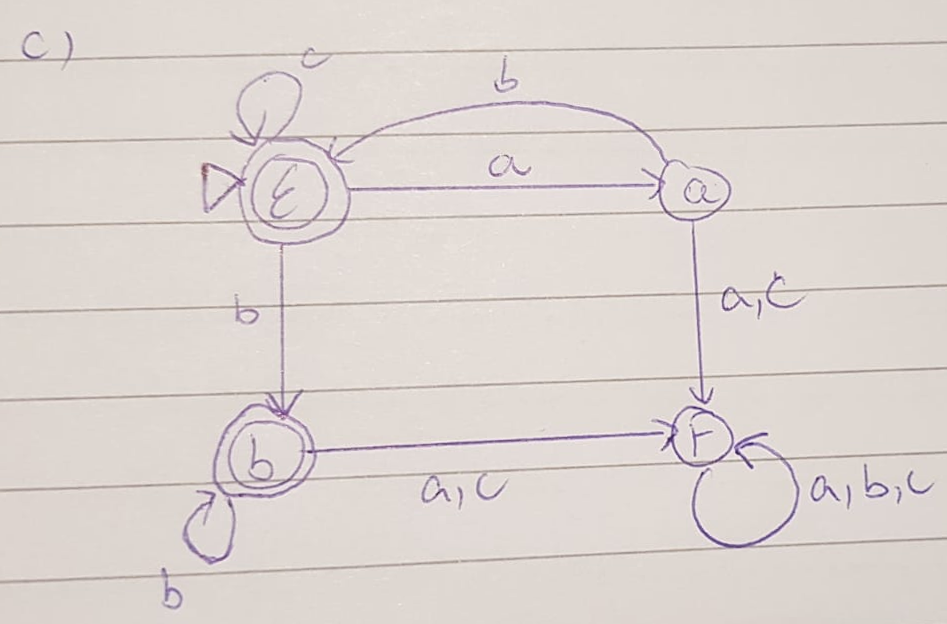 c)
c
b
ε
a
a
b
a,c
b
F
a,c
a,b,c
b